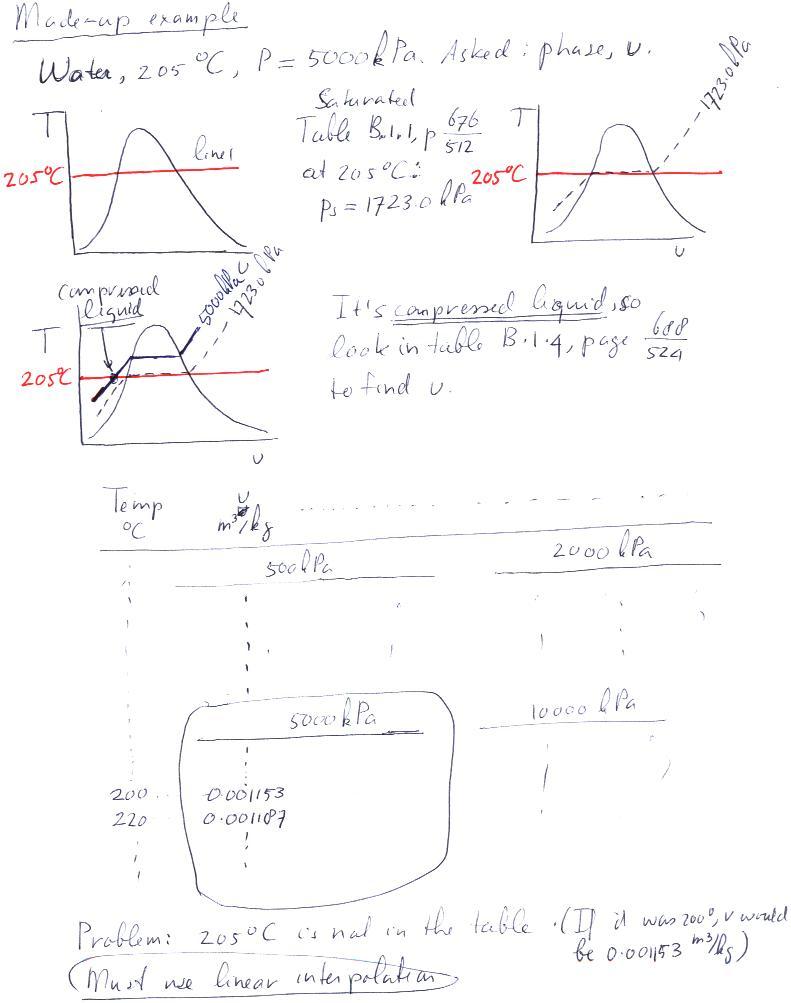 Made-up example
Water, 205 °C, P = 5000 kPa. Asked: phase, v.
T
205°C
line 1
v
Saturated
Table B.1.1, p 676/512
at 205°C:
ps = 1723.0 kPa
T
205°C
1723.0 kPa
v
compressed
liquid
T
205°C
5000 kPa
1723.0 kPa
v
It's compressed liquid, so
look in table B.1.4, page 688/524
to find v.
Temp
°C
v
m³/kg
500 kPa
2000 kPa
5000 kPa
10000 kPa
200 0.001153
220 0.001187
Problem: 205°C is not in the table. (If it was 200°, v would
be 0.001153 m³/kg)
Must use linear interpolation